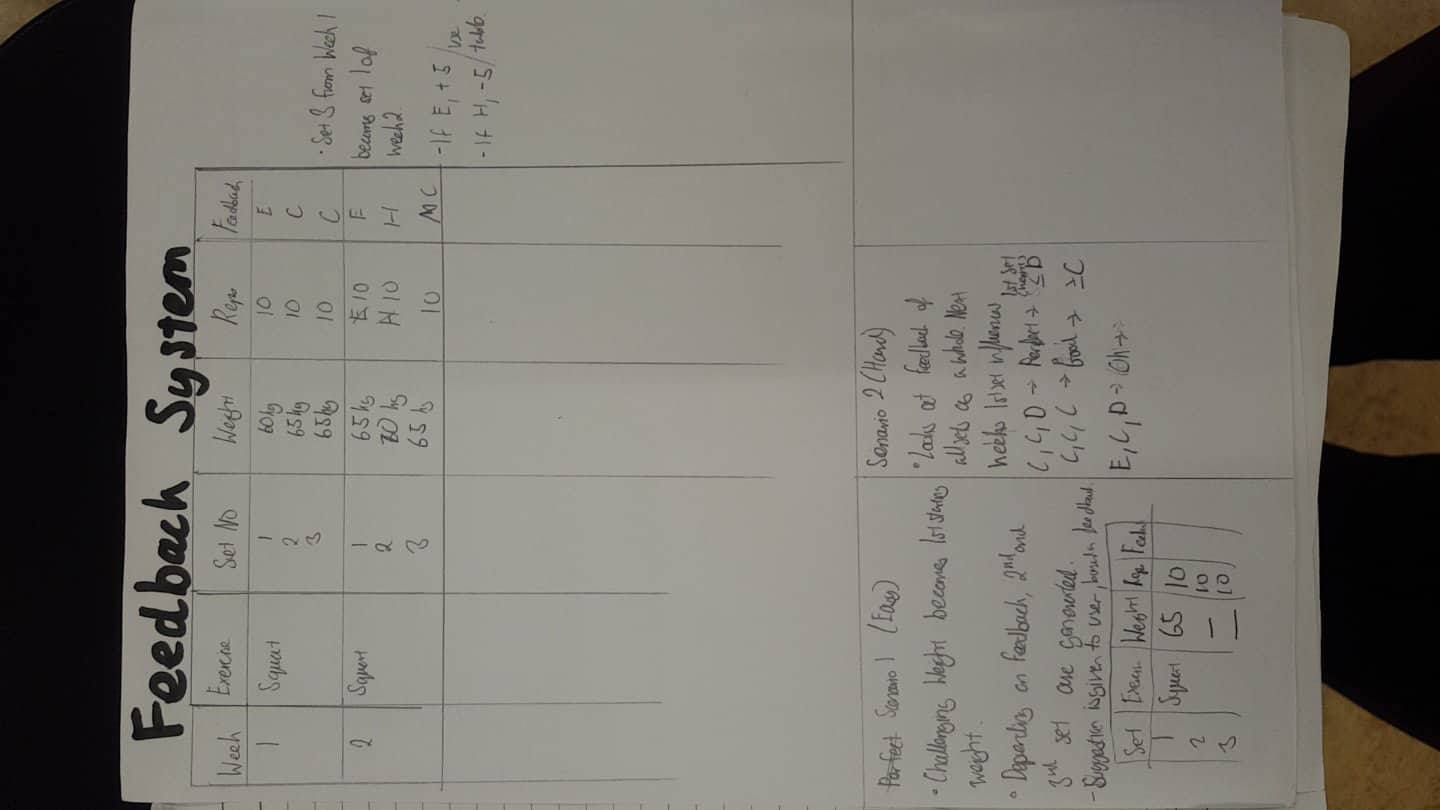 Feedback System
Week Exercise Set No Weight Reps Feedback
1 Squat 1 60kg 10 E
2 65kg 10 C
3 65kg 10 C
2 Squat 1 65kg 10 E
2 kg 10 H
3 65kg 10 C
• Set 3 from Week 1
becoms set 1 of
week 2.
- If E, + 5 / use
- If H, -5 / table
Perfect Scenario 1 (Easy)
• Challenging Weight becomes 1st starting
weight.
• Depending on Feedback, 2nd and
3rd set are generated.
- Suggestion is given to user, based on feedback.
Set Exercise Weight Reps
1 Squat 65 10
2 — 10
3 — 10
Scenario 2 (Hard)
• Looks at feedback of
all sets as a whole. Next
weeks 1st set influences
C, C, D → Perfect → 1st set ≤ D
C, C, C → Good → ≥C
E, C, D → Oh →